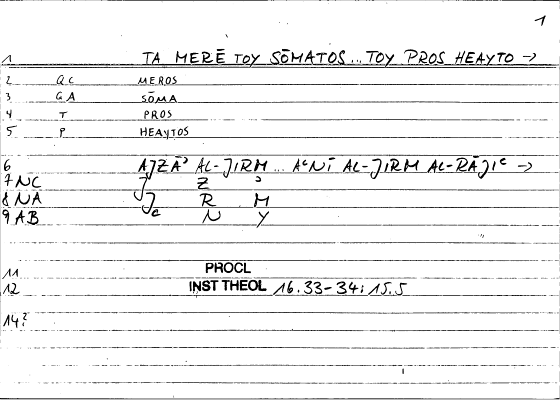 1
1 TA MERĒ TOY SŌMATOS... TOY PROS HEAYTO →
2 QC MEROS
3 GA SŌMA
4 T PROS
5 P HEAYTOS
6 AJZĀʾ AL-JIRM ... AʿNĪ AL-JIRM AL-RĀJIʿ →
7 NC J Z ʾ
8 NA J R M
9 AB ʿ N Y
11 PROCL
12 INST THEOL 16.33-34; 15.5
14?